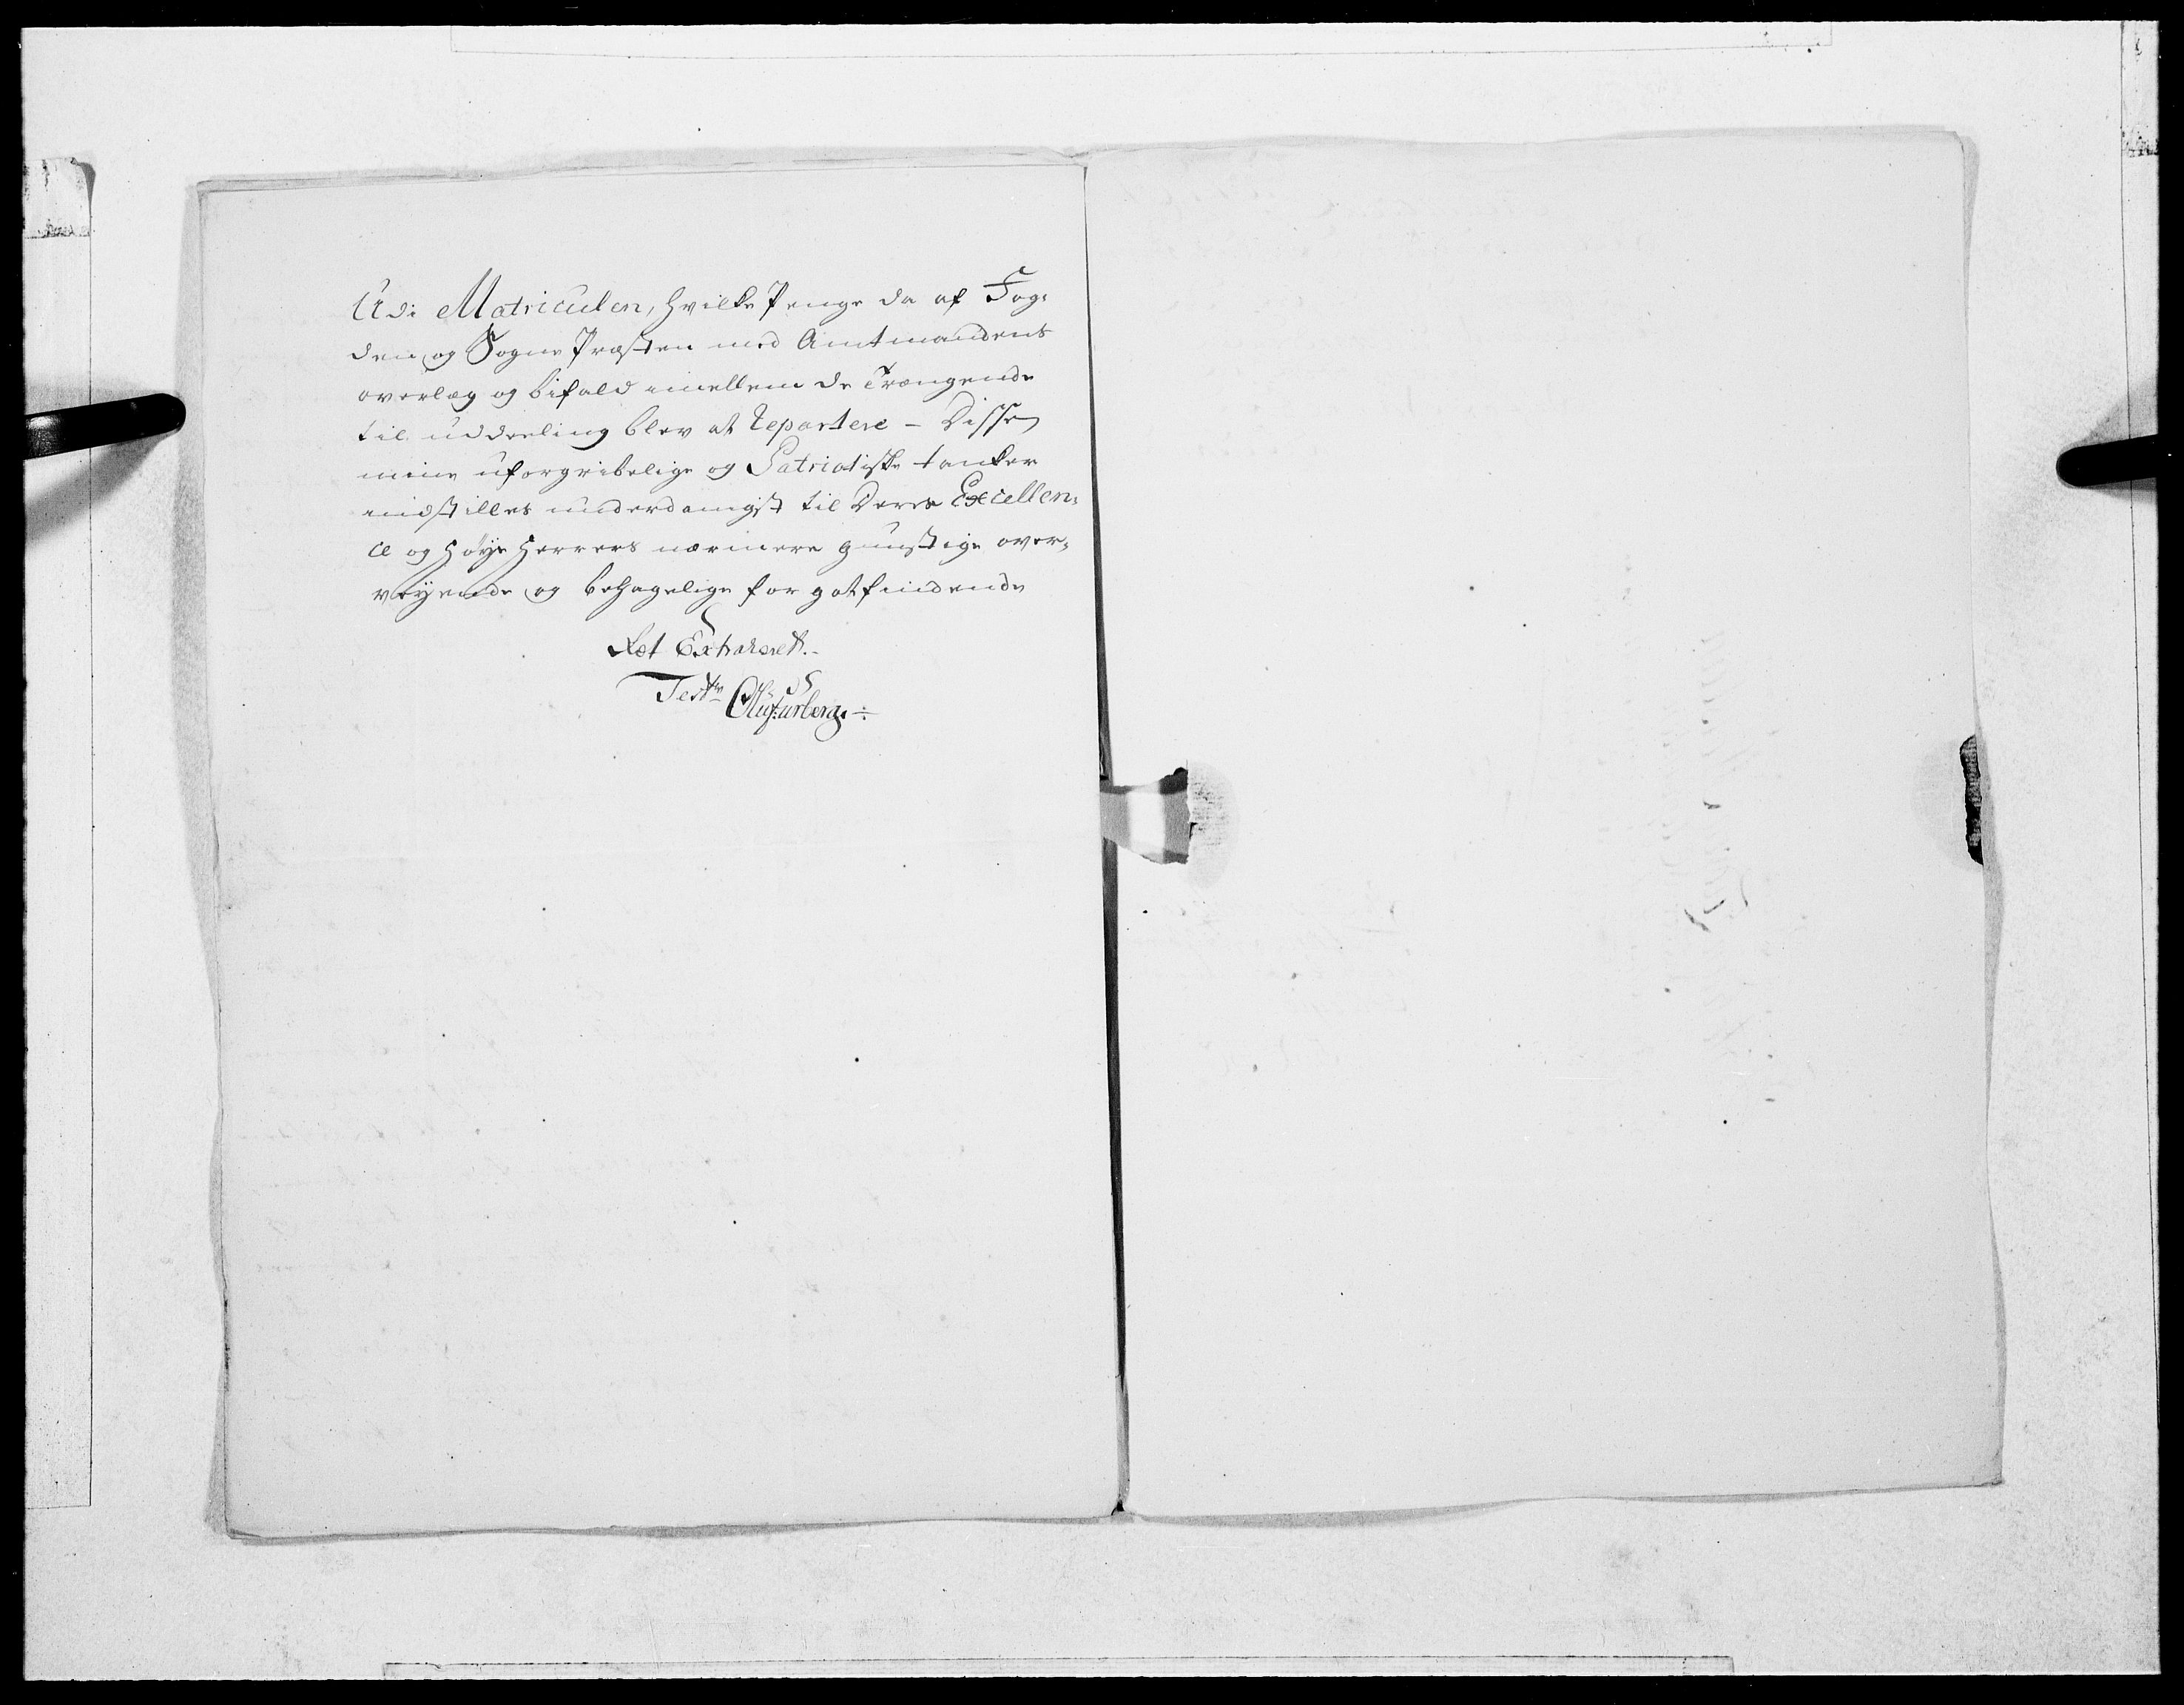 Udi Matriculen, hvilke Penge da af Fog-
den og Sogne Præsten med Amtmandens
overlæg og bifald imellem de Trængende
til uddeeling blev at repartere - Disse
mine uforgribelige og Patriotiske tanker
indstilles underdanigst til Deres Excellen-
ce og høye Herrers nærmere gunstige over-
veyende og behagelige for gotfindende
Ret Extraheret.
Test